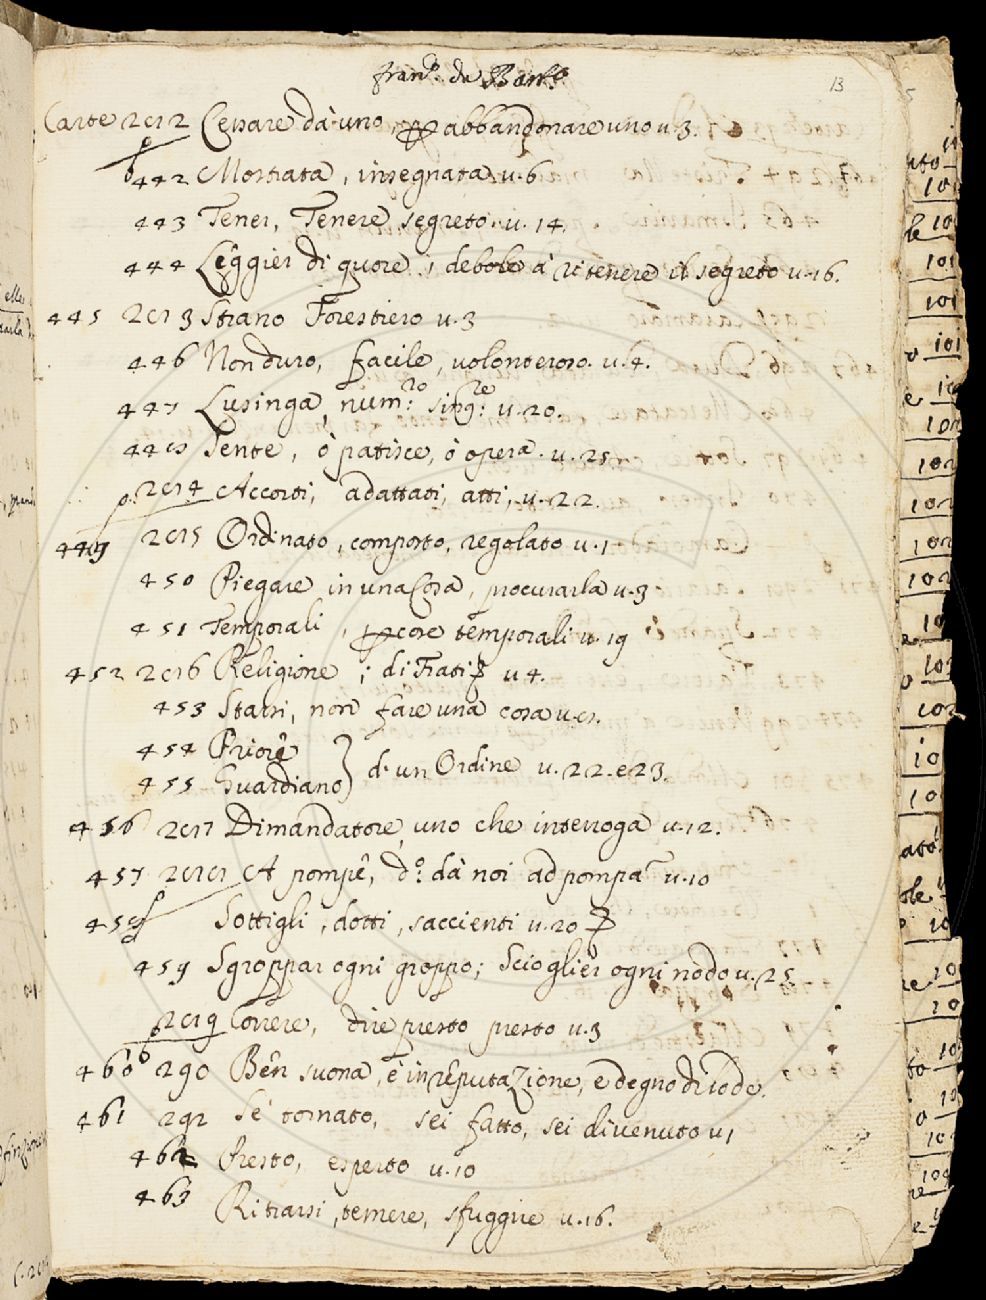 fran.º da Barb.º
13
Carte 282 Cessare da uno, p abbandonare uno u. 3.
442 Mostrata, insegnata u. 6
443 Tener, Tenere segreto u. 14.
444 Leggier di quore, debole à ritenere il segreto u. 16.
445 283 Strano Forestiero u. 3
446 Non duro, facile, volonteroso. u. 4.
447 Lusinga, num:ro sing:re u. 20.
448 Sente, ò patisce, ò opera. u. 25
284 Accorti, adattati, atti, u. 22.
449 285 Ordinato, composto, regolato u. 1
450 Piegare in una Cosa, procurarla u. 3
451 Temporali, p cose temporali u. 19
452 286 Religione, di Frati u 4.
453 Starsi, non fare una cosa u. 8.
454 Priore
455 Guardiano } d'un Ordine u. 22. e 23.
456 287 Dimandatore, uno che interroga u. 12.
457 288 A pompe, d.º da noi ad pompa u. 10
458 Sottigli, dotti, saccienti u. 20
459 Sgroppar ogni groppo; Scioglier ogni nodo u. 25
289 Correre, dire presto presto u. 3
460 290 Ben suona, è in reputazione, e degno di lode.
461 292 Se' tornato, sei fatto, sei divenuto u 1
462 Presto, esperto u. 10
463 Ritrarsi, temere, sfuggire u. 16.